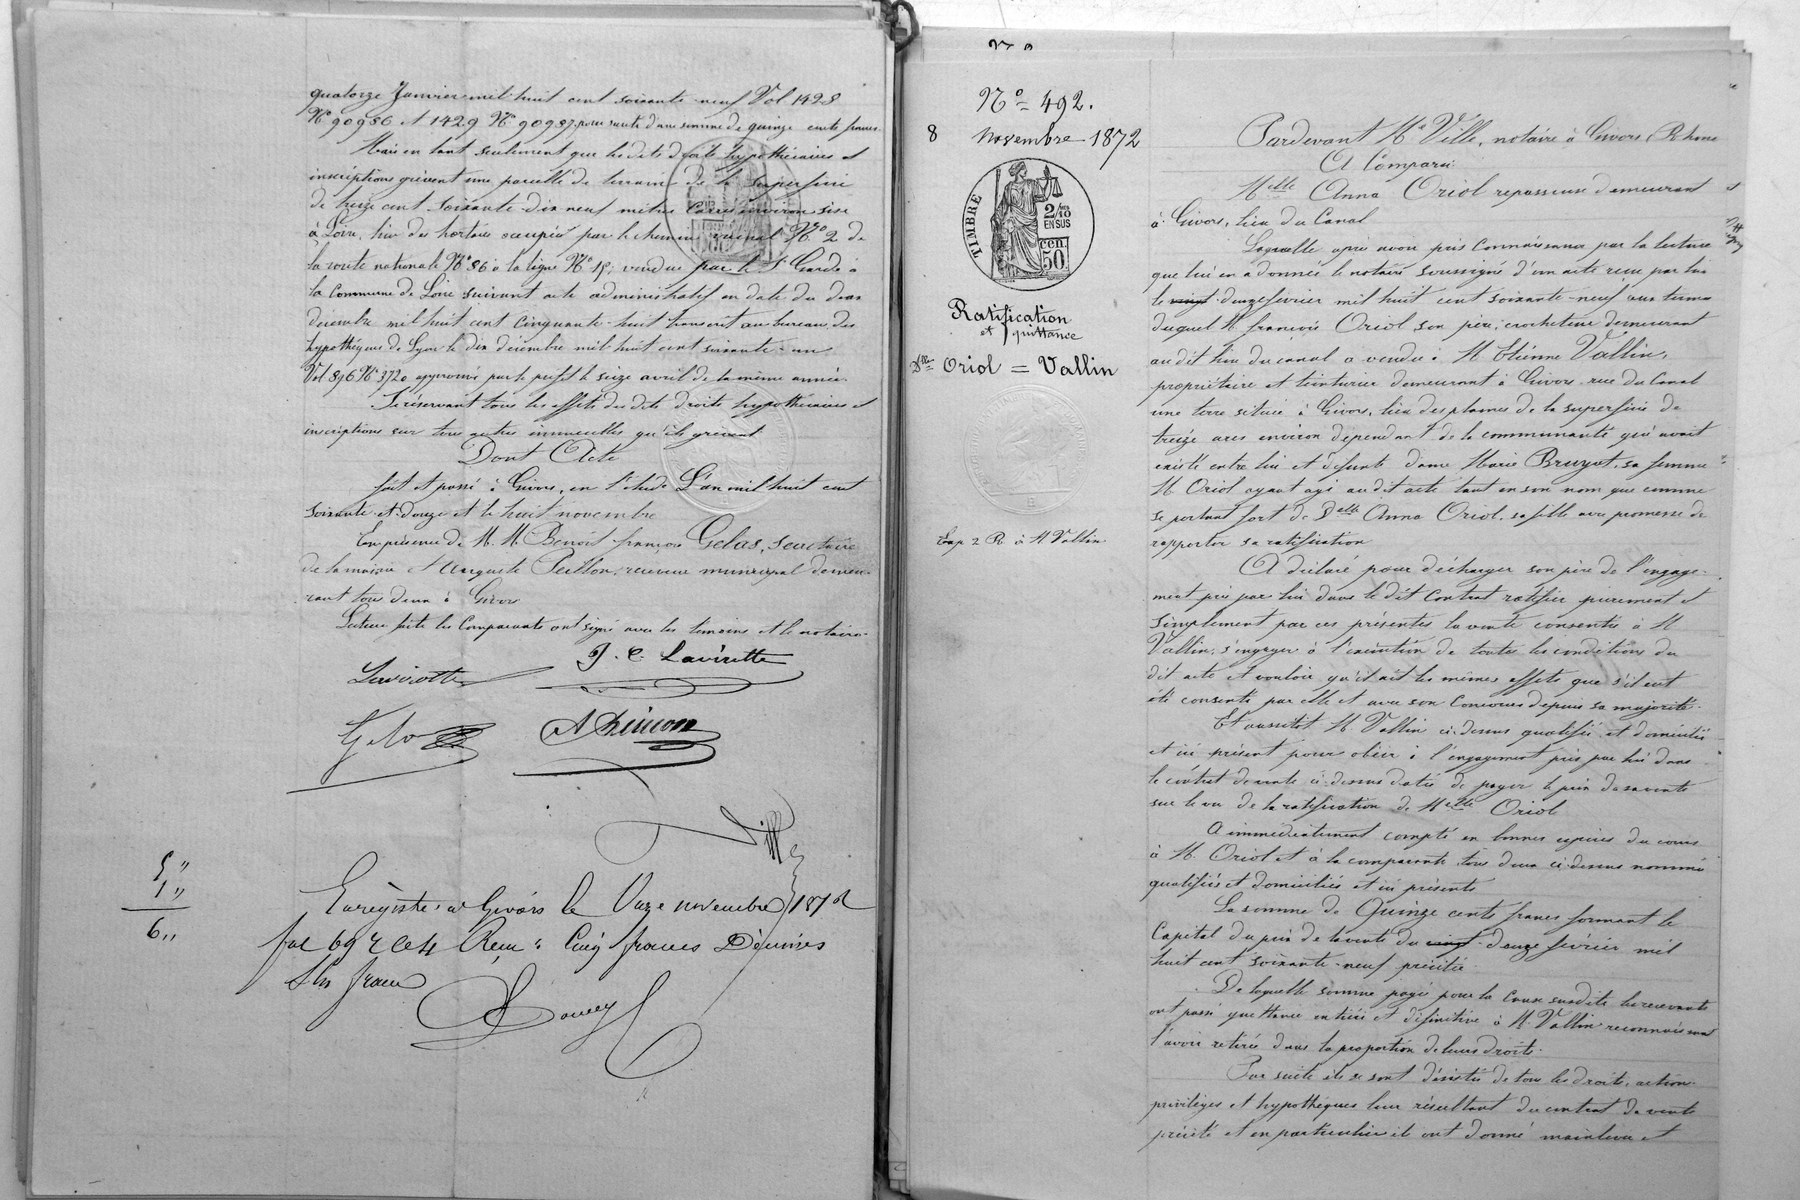 quatorze Janvier mil huit cent soixante neuf Vol 1428
No 90986 et 1429 No 90987, pour sureté d'une somme de quinze cents francs.
Mais en tant seulement que les dits droits hypothécaires et
inscriptions grèvent une parcelle de terrain de la superficie
de treize cent soixante dix neuf mètres carrés environ sise
à Loire, lieu des hortais occupée par le chemin vicinal No 2 de
la route nationale No 86 à la ligne No 15, vendue par le Sr Garde à
la Commune de Loire suivant acte administratif en date du deux
décembre mil huit cent cinquante-huit transcrit au bureau des
hypothèques de Lyon le dix décembre mil huit cent soixante-un
Vol 896 No 3720 approuvé par le préfet le seize avril de la même année.
Se réservant tous les effets des dits droits hypothécaires et
inscriptions sur tous autres immeubles qu'ils grèvent
Dont Acte
fait et passé à Givors, en l'étude L'an mil huit cent
soixante-et-douze et le huit novembre
En présence de M. M. Benoit françois Gelas, secrétaire
de la mairie et Auguste Peillon, receveur municipal demeu-
rant tous deux à Givors
Lecture faite les Comparants ont signé avec les témoins et le notaire.
Lavirotte
J. C. Lavirotte
Gelas
Ville
5 "
1 "
6 "
Enregistré à Givors le Onze novembre 1872
fol 69 Reçu : Cinq francs Décimes
Un franc
No 492.
8 Novembre 1872
TIMBRE
2/10
EN SUS
50 cen.
Ratification
et quittance
Dlle Oriol = Vallin
Exp 2 R à M Vallin
Pardevant Me Ville, notaire à Givors, Rhône
A Comparu
Melle Anna Oriol repasseuse demeurant
à Givors, lieu du Canal
Laquelle après avoir pris Connaissance par la lecture
que lui en a donnée le notaire soussigné d'un acte reçu par lui
le vingt douze février mil huit cent soixante-neuf aux termes
duquel M. françois Oriol son père, crocheteur demeurant
au dit lieu du canal a vendu à M Etienne Vallin,
propriétaire et teinturier demeurant à Givors rue du Canal
une terre située à Givors, lieu des plaines de la superficie de
treize ares environ dépendant de la communauté qui avait
existé entre lui et défunte dame Marie Bruyat, sa femme
M Oriol ayant agi au dit acte tant en son nom que comme
se portant fort de Delle Anna Oriol, sa fille avec promesse de
rapporter sa ratification
A déclaré pour décharger son père de l'engage-
ment pris par lui dans le dit Contrat ratifier purement et
simplement par ces présentes la vente consentie à M
Vallin, s'engager à l'exécution de toutes les conditions du
dit acte et vouloir qu'il ait les mêmes effets que s'il eut
été consenti par elle et avec son Concours depuis sa majorité.
Et aussitot M Vallin ci-dessus qualifié et domicilié
et ici présent pour obéir à l'engagement pris par lui dans
le contrat de vente ci-dessus daté de payer le prix de sa vente
sur le vu de la ratification de Melle Oriol
A immédiatement compté en bonnes espèces du cours
à M. Oriol et à la comparante tous deux ci-dessus nommés
qualifiés et domiciliés et ici présents
La somme de Quinze cents francs formant le
Capital du prix de la vente du vingt douze février mil
huit cent soixante-neuf précitée
De laquelle somme payée pour la Cause susdite les recevants
ont passé quittance entière et définitive à M. Vallin reconnaissant
l'avoir retirée dans la proportion de leurs droits.
Par suite ils se sont désistés de tous les droits, action
privilèges et hypothèques leur résultant du contrat de vente
précité et en particulier ils ont donné mainlevée et